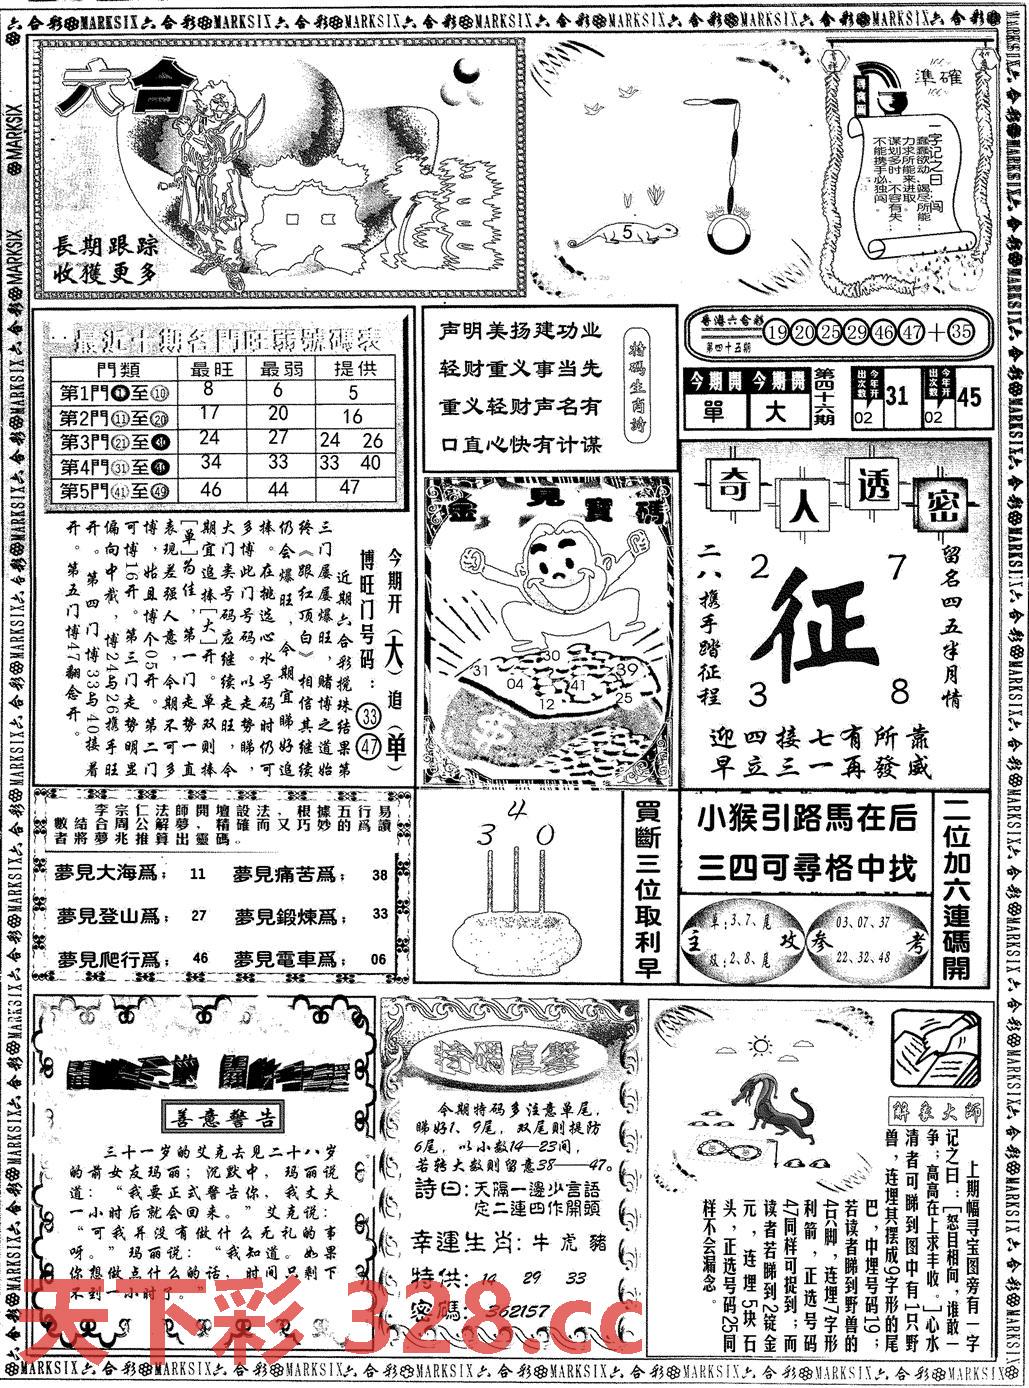 六合彩MARKSIX六合彩MARKSIX六合彩MARKSIX六合彩MARKSIX六合彩MARKSIX六合彩MARKSIX六合彩
六合
長期跟踪
收獲更多
5
準確
一字记之曰：闯
蠢蠢欲动、竭尽所能
力求所能来进取。
谋划多时、不容有失
不能携手必独闯。
最近十期各門旺弱號碼表
門類 最旺 最弱 提供
第1門①至⑩ 8 6 5
第2門⑪至⑳ 17 20 16
第3門㉑至㉚ 24 27 24 26
第4門㉛至㊵ 34 33 33 40
第5門㊶至㊾ 46 44 47
今期开（大）追（单）
博旺门号码：㉝㊼
近期六合彩搅珠结果第
三门屡屡爆旺，赌博之道始
终《跟红顶白》相信其继续
仍会爆旺，今期宜睇好追
捧。在挑选心水号码时仍可
多博此门号码。以走势睇，
大门类号码应继续走旺，今
期宜追捧[大]开。单双则捧
[单]为佳，第一门走势一直
表现差强人意，今期不可多
博，姑且博个05开。第二门
可博16开。第三门走势明显
偏向中截，博24与26携手旺
开。第四门博33与40接着
开。第五门博47翻念开。
声明美扬建功业
轻财重义事当先
重义轻财声名有
口直心快有计谋
特码生肖詩
金見寶碼
31
30
39
04
41
25
12
$
香港六合彩
第四十五期
19 20 25 29 46 47 + 35
今期開 今期開
單 大
第四十六期
今年开出次数 02 31
今年开出次数 02 45
奇人透密
二八携手踏征程
2 7
征
3 8
留名四五半月情
迎四接七有所靠
早立三一再發威
李宗仁法師開壇設法，根據五行易
數結合周公解夢，精確而又巧妙的爲讀
者將夢兆推算出靈碼。
夢見大海爲； 11 夢見痛苦爲； 38
夢見登山爲； 27 夢見鍛煉爲； 33
夢見爬行爲； 46 夢見電車爲； 06
3 4 0
買斷三位取利早
小猴引路馬在后
三四可尋格中找
主攻
单:3、7、尾
双:2、8、尾
参考
03、07、37
22、32、48
二位加六連碼開
善意警告
三十一岁的艾克去见二十八岁
的前女友玛丽；沉默中，玛丽说
道：“我要正式警告你，我丈夫
一小时后就会回来。”艾克说：
“可我并没有做什么无礼的事
呀。”玛丽说：“我知道。如果
你想做点什么的话，时间只剩下
不到一小时了。”
特碼直擊
今期特码多注意单尾，
睇好1、9尾，双尾则提防
6尾，以小数14—23间，
若转大数则留意38——47。
詩曰：天隔一邊少言語
定二連四作開頭
幸運生肖：牛 虎 豬
特供：14 29 33
密碼：362157
解象大師
上期幅寻宝图旁有一字
记之曰：[怒目相向，谁敢一
争；高高在上求丰收。]心水
清者可睇到图中有1只野
兽，连埋其摆成9字形的尾
巴，中埋号码19；
若读者睇到野兽的
4只脚，连埋7字形
利箭，正选号码
47同样可捉到；而
读者若睇到2锭金
元，连埋5块石
头，正选号码25同
样不会漏念。
天下彩 328.cc
六合彩MARKSIX六合彩MARKSIX六合彩MARKSIX六合彩MARKSIX六合彩MARKSIX六合彩MARKSIX六合彩